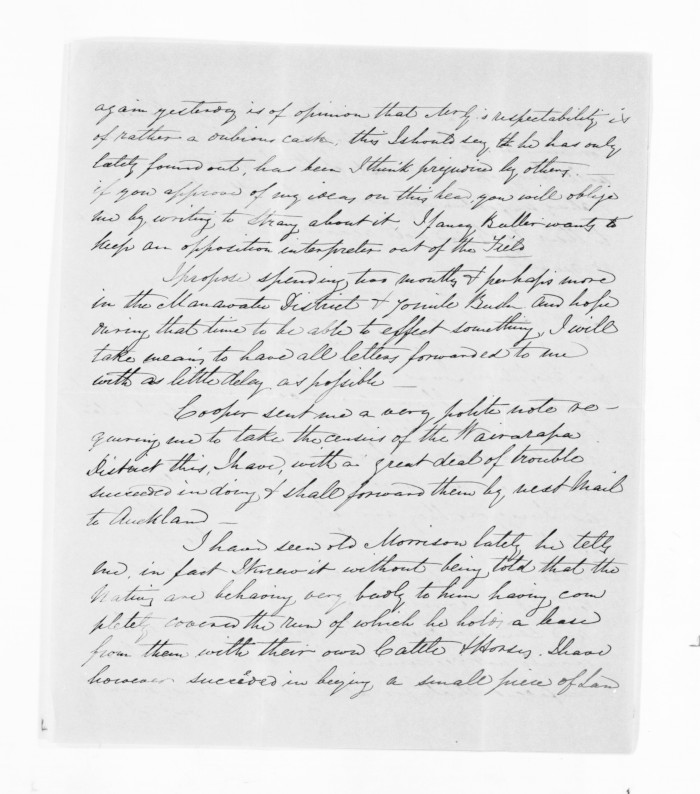 again yesterday is of opinion that Mr G's respectability is
of rather a dubious cask, this I should say he has only
lately found out, has been I think prejudiced by others —
if you approve of my ideas on this head you will oblige
me by writing to Strang about it I fancy Buller wants to
keep an opposition interpreter out of the Field
I propose spending two months & perhaps more
in the Manawatu District & Bush and hope
during that time to be able to effect something, I will
take means to have all letters forwarded to me
with as little delay as possible —
Cooper sent me a very polite note re-
quiring me to take the census of the Wairarapa
District this, I have, with a great deal of trouble
succeeded in doing & shall forward them by next Mail
to Auckland —
I have seen old Morrison lately he tells
me, in fact I knew it without being told that the
Natives are behaving very badly to him having com
pletely covered the run of which he holds a lease
from them with their own Cattle & Horses. I have
however succeeded in buying a small piece of Land